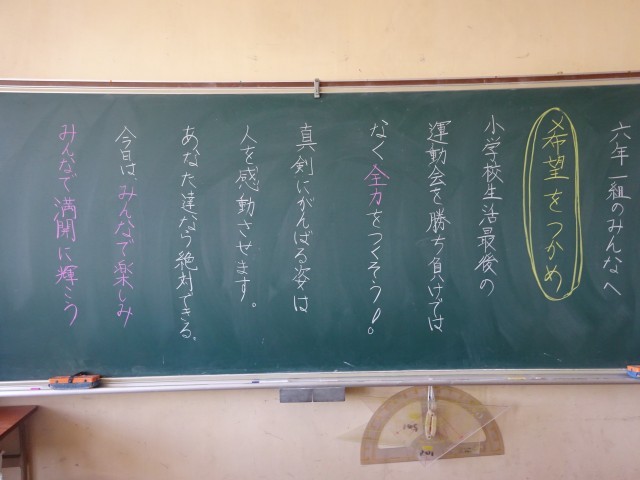 六年一組のみんなへ
希望をつかめ
小学校生活最後の
運動会を勝ち負けでは
なく全力をつくそう!。
真剣にがんばる姿は
人を感動させます。
あなた達なら絶対できる。
今日はみんなで楽しみ
みんなで満開に輝こう